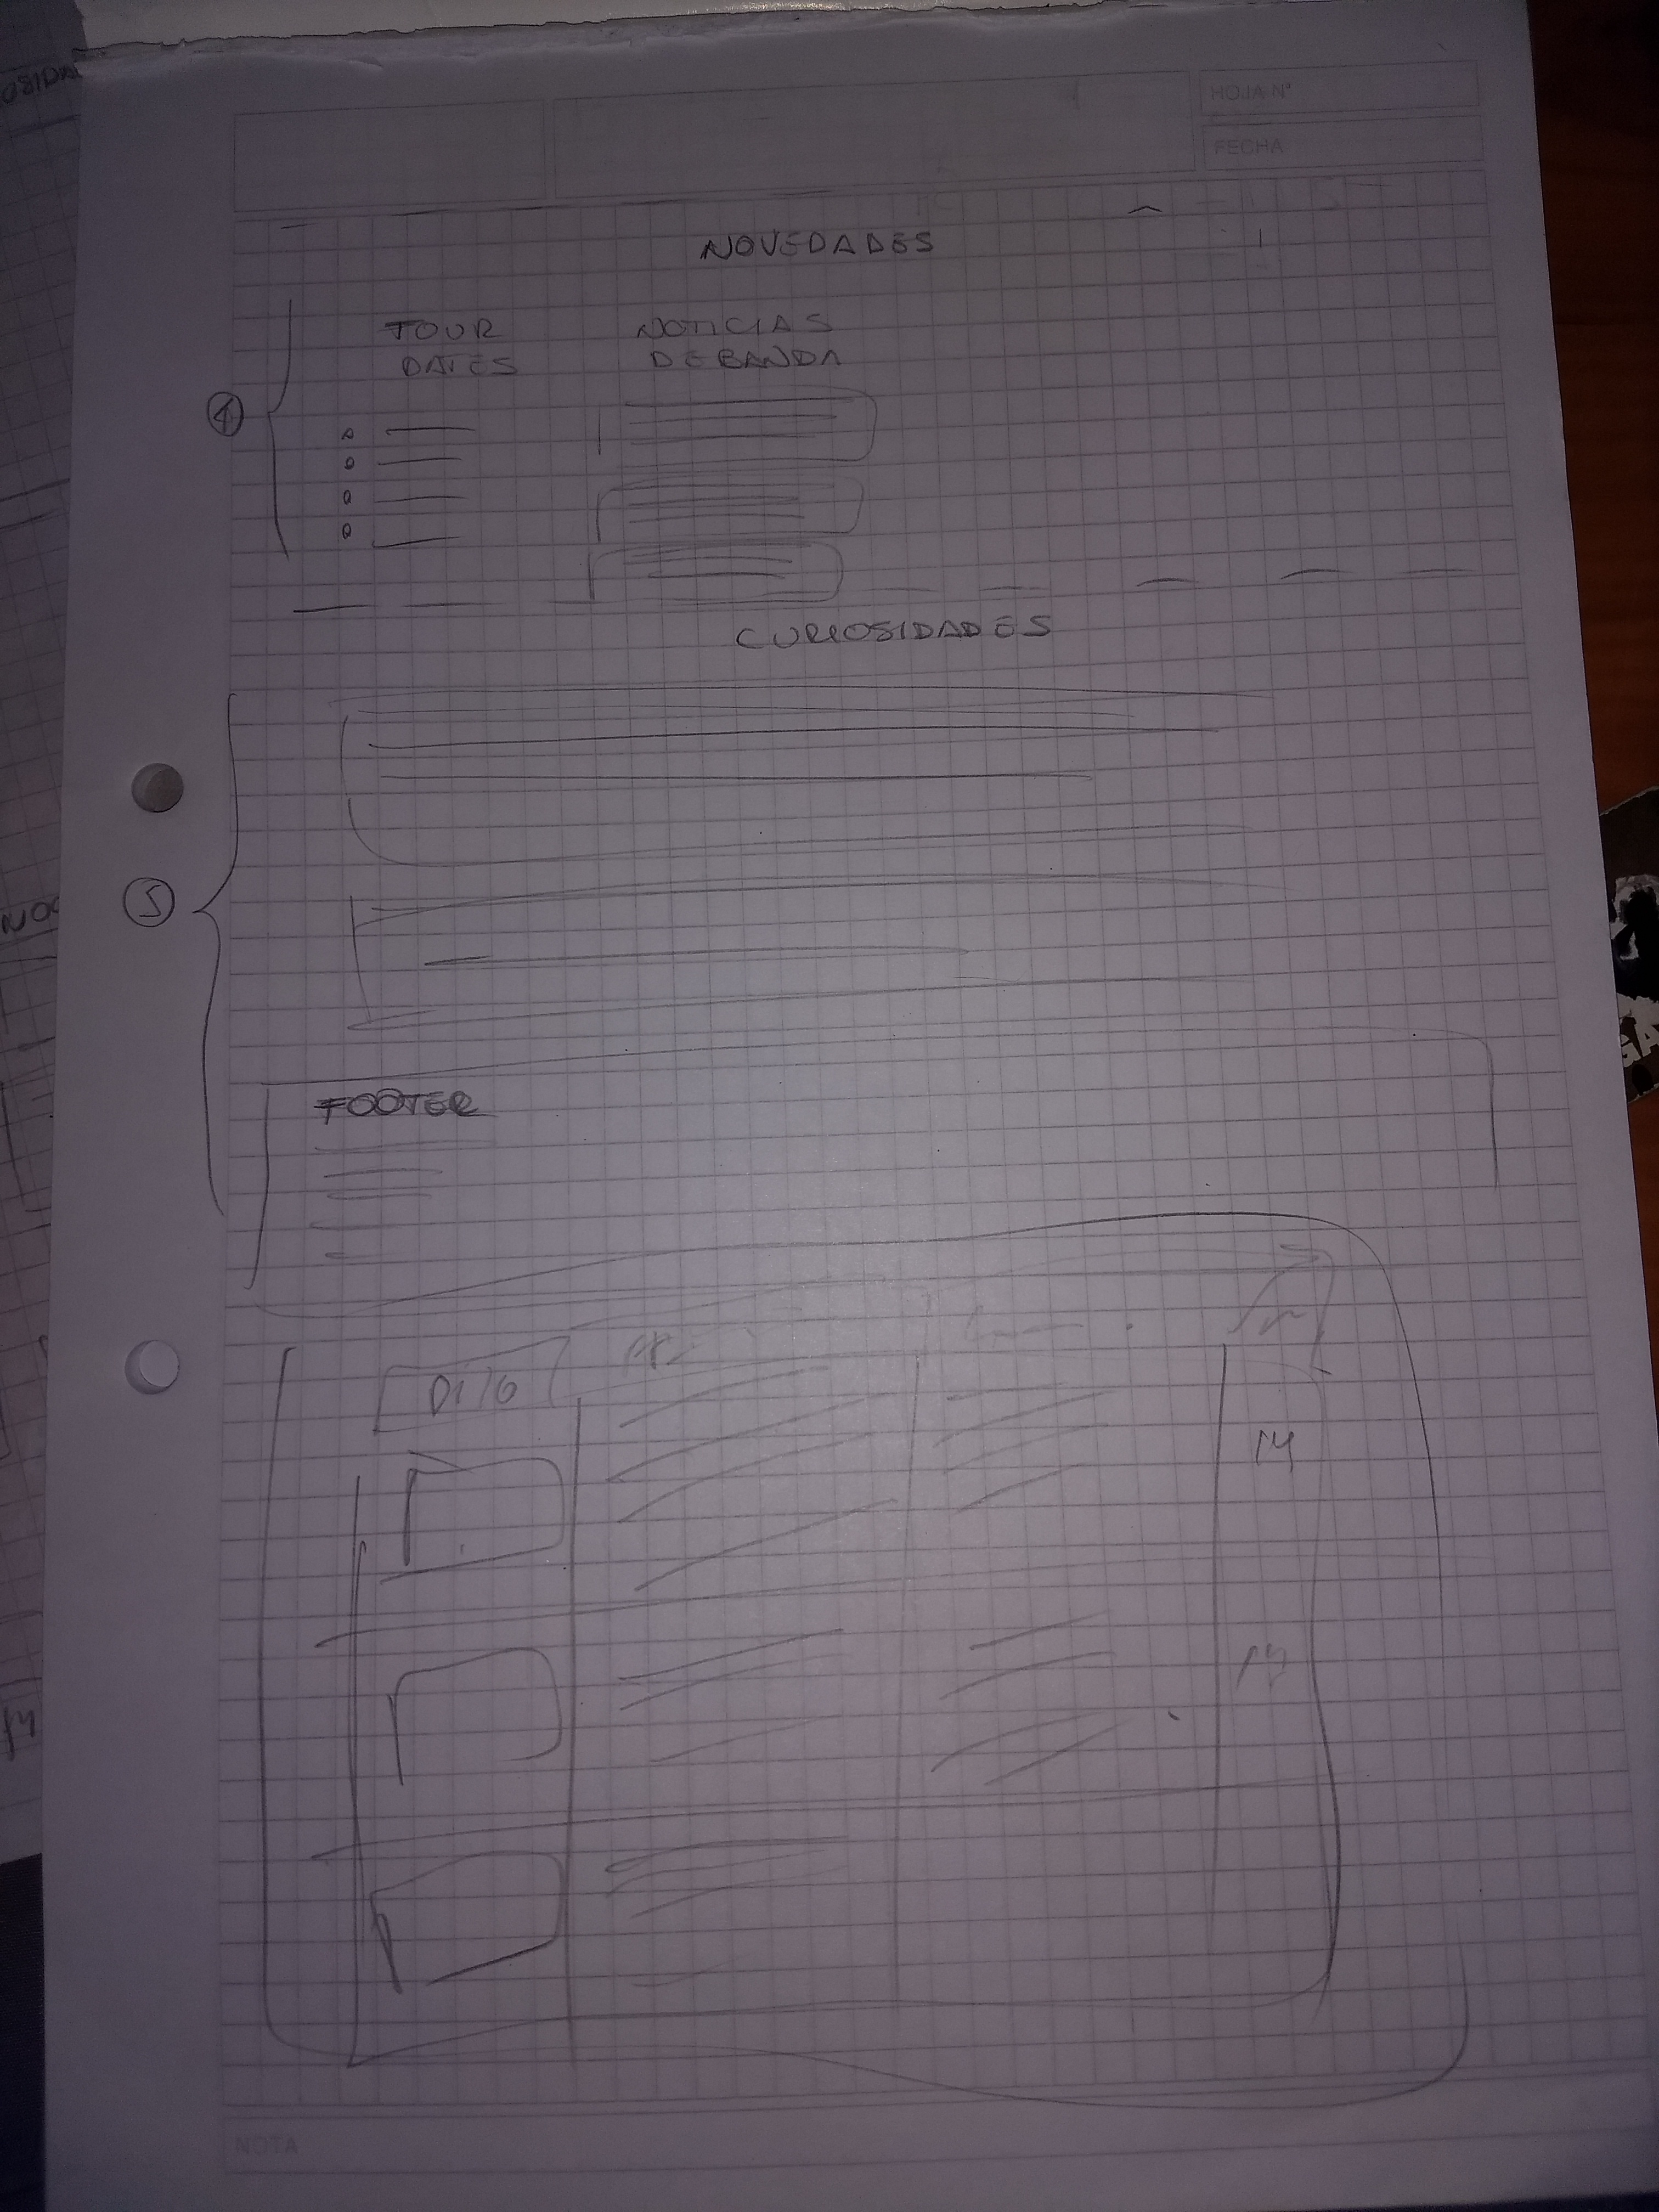 OSIDA
HOJA Nº
FECHA
NOVEDADES
TOUR
DATES
NOTICIAS
DE BANDA
4
CURIOSIDADES
5
FOOTER
14
14
14
NOTA
GA